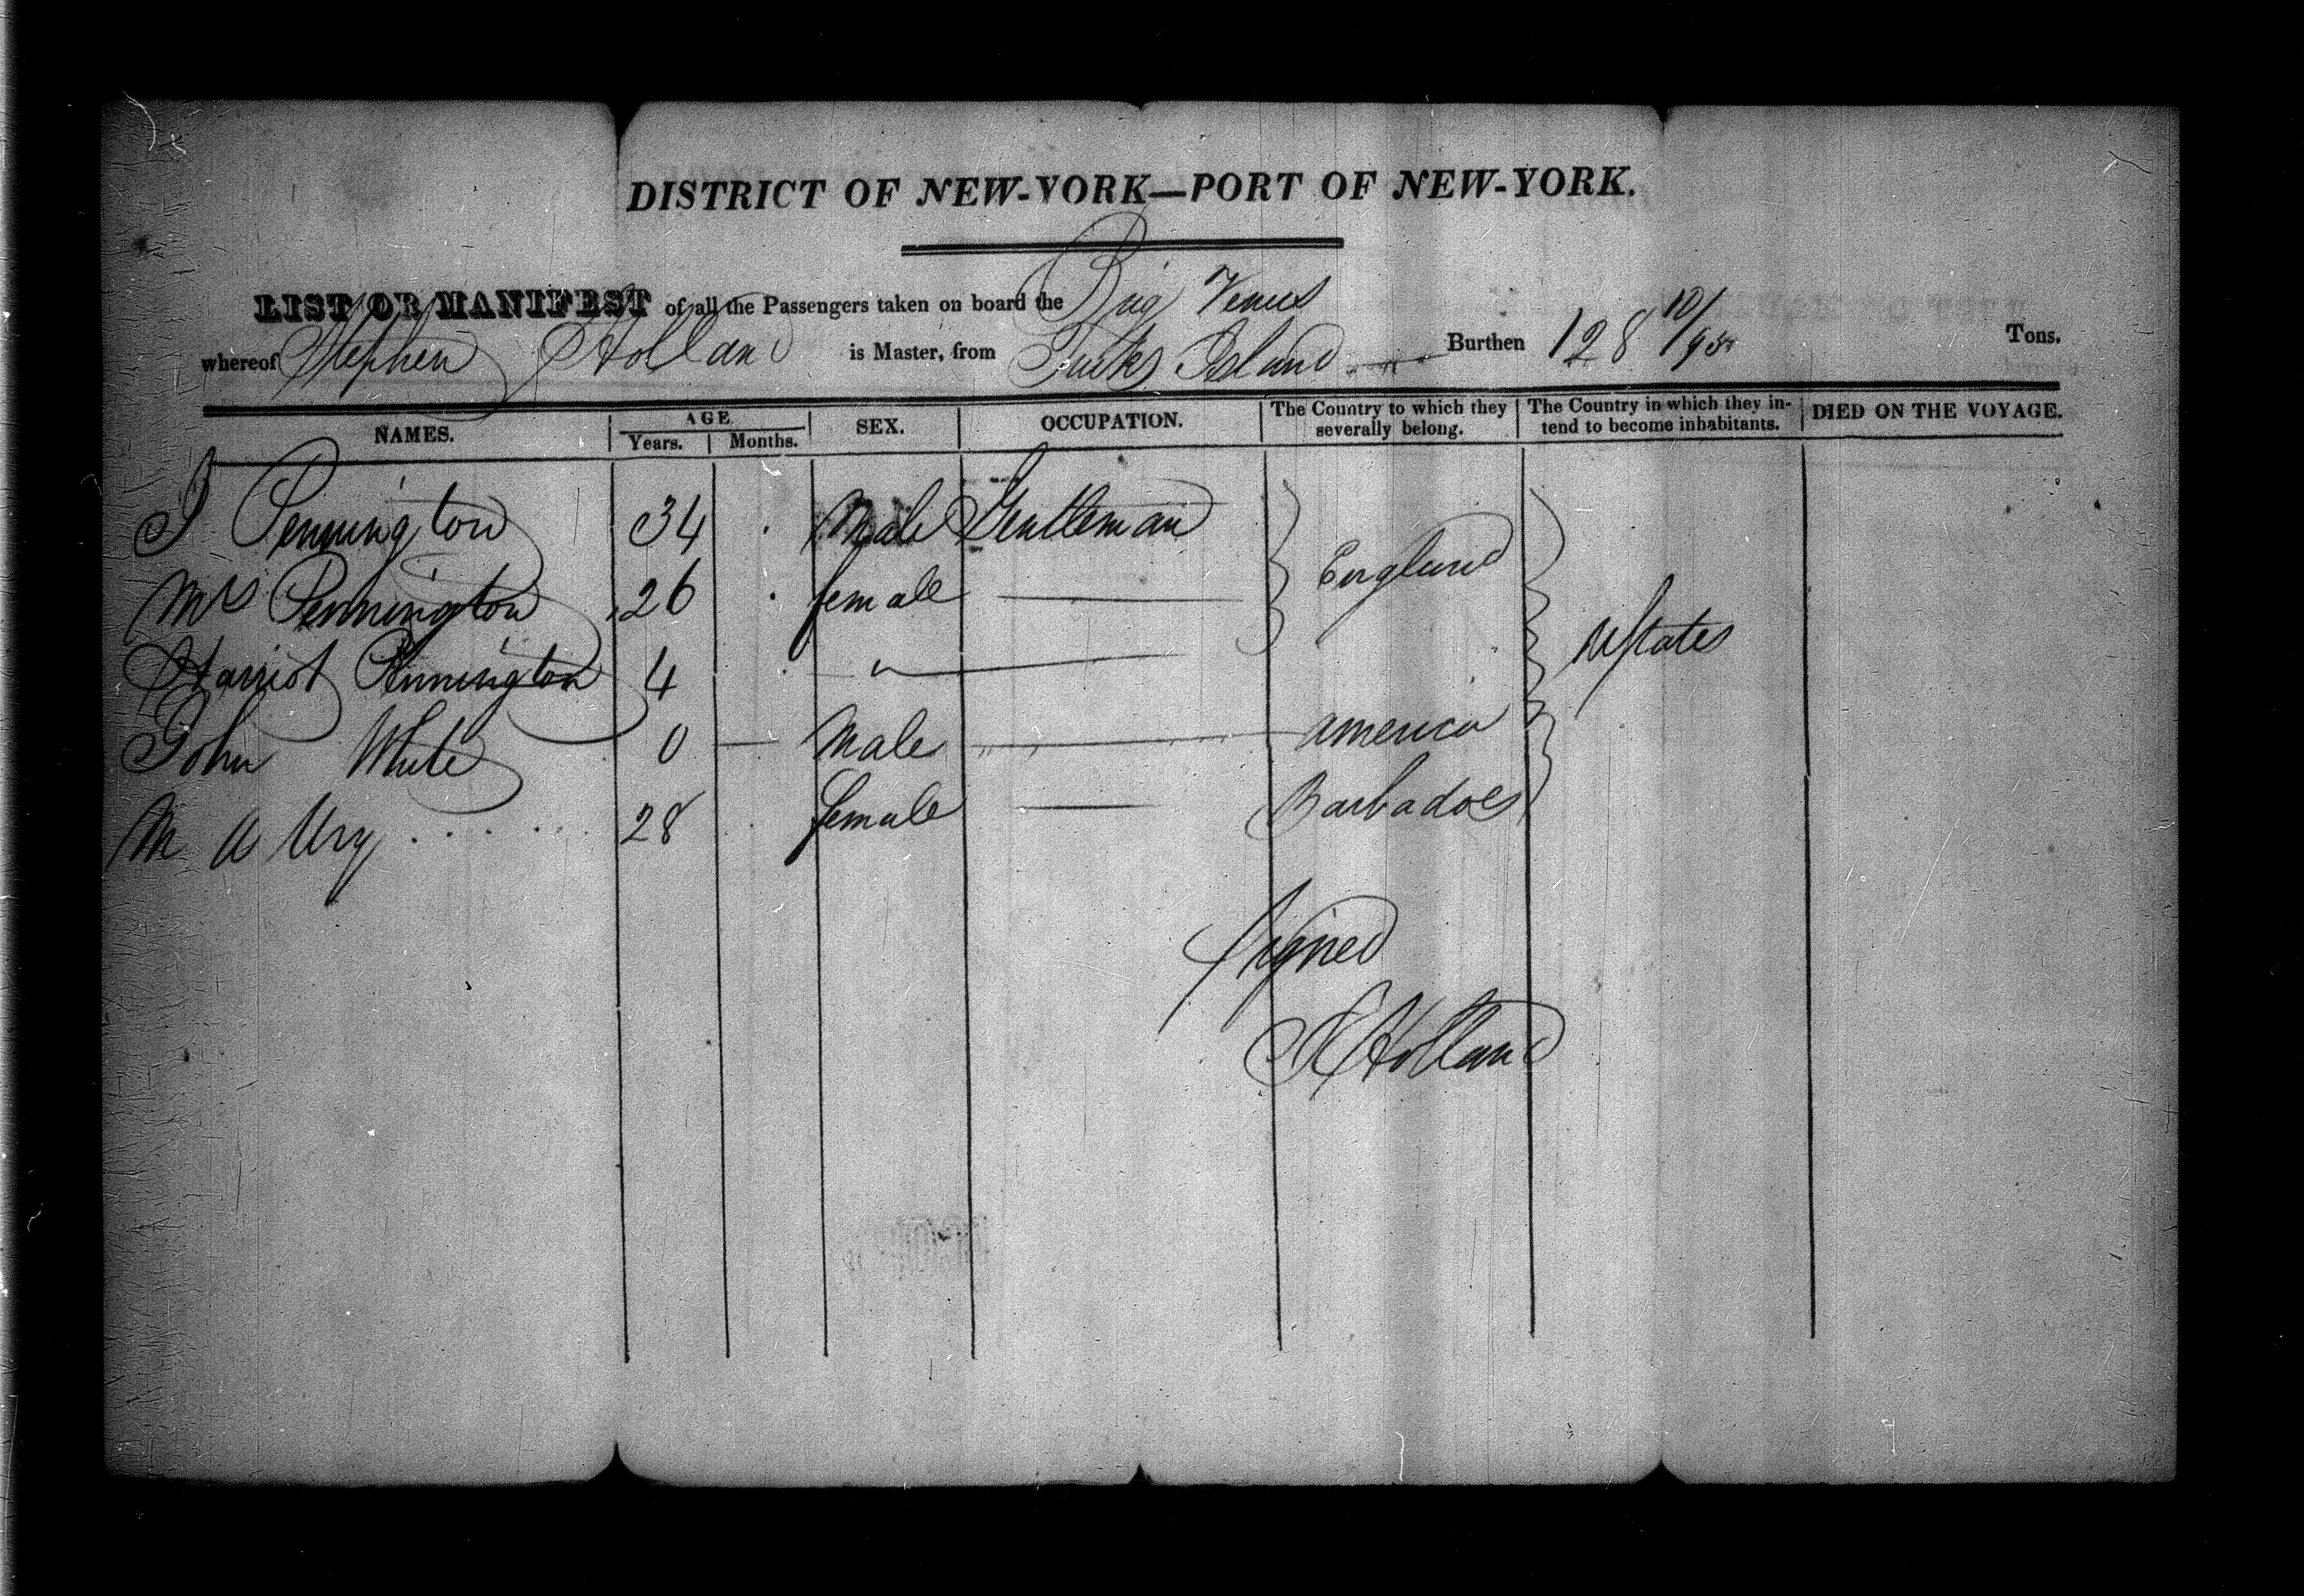 DISTRICT OF NEW-YORK—PORT OF NEW-YORK.
LIST OR MANIFEST of all the Passengers taken on board the Brig Venus
whereof Stephen Holland is Master, from Turks Island Burthen 128 10/95 Tons.
NAMES. AGE Years. Months. SEX. OCCUPATION. The Country to which they severally belong. The Country in which they intend to become inhabitants. DIED ON THE VOYAGE.
J Pennington 34 Male Gentleman
Mrs Pennington 26 female England
Harriot Pennington 4 " UStates
John White 0 Male America
M A Ury 28 female Barbadoes
Signed
S Holland